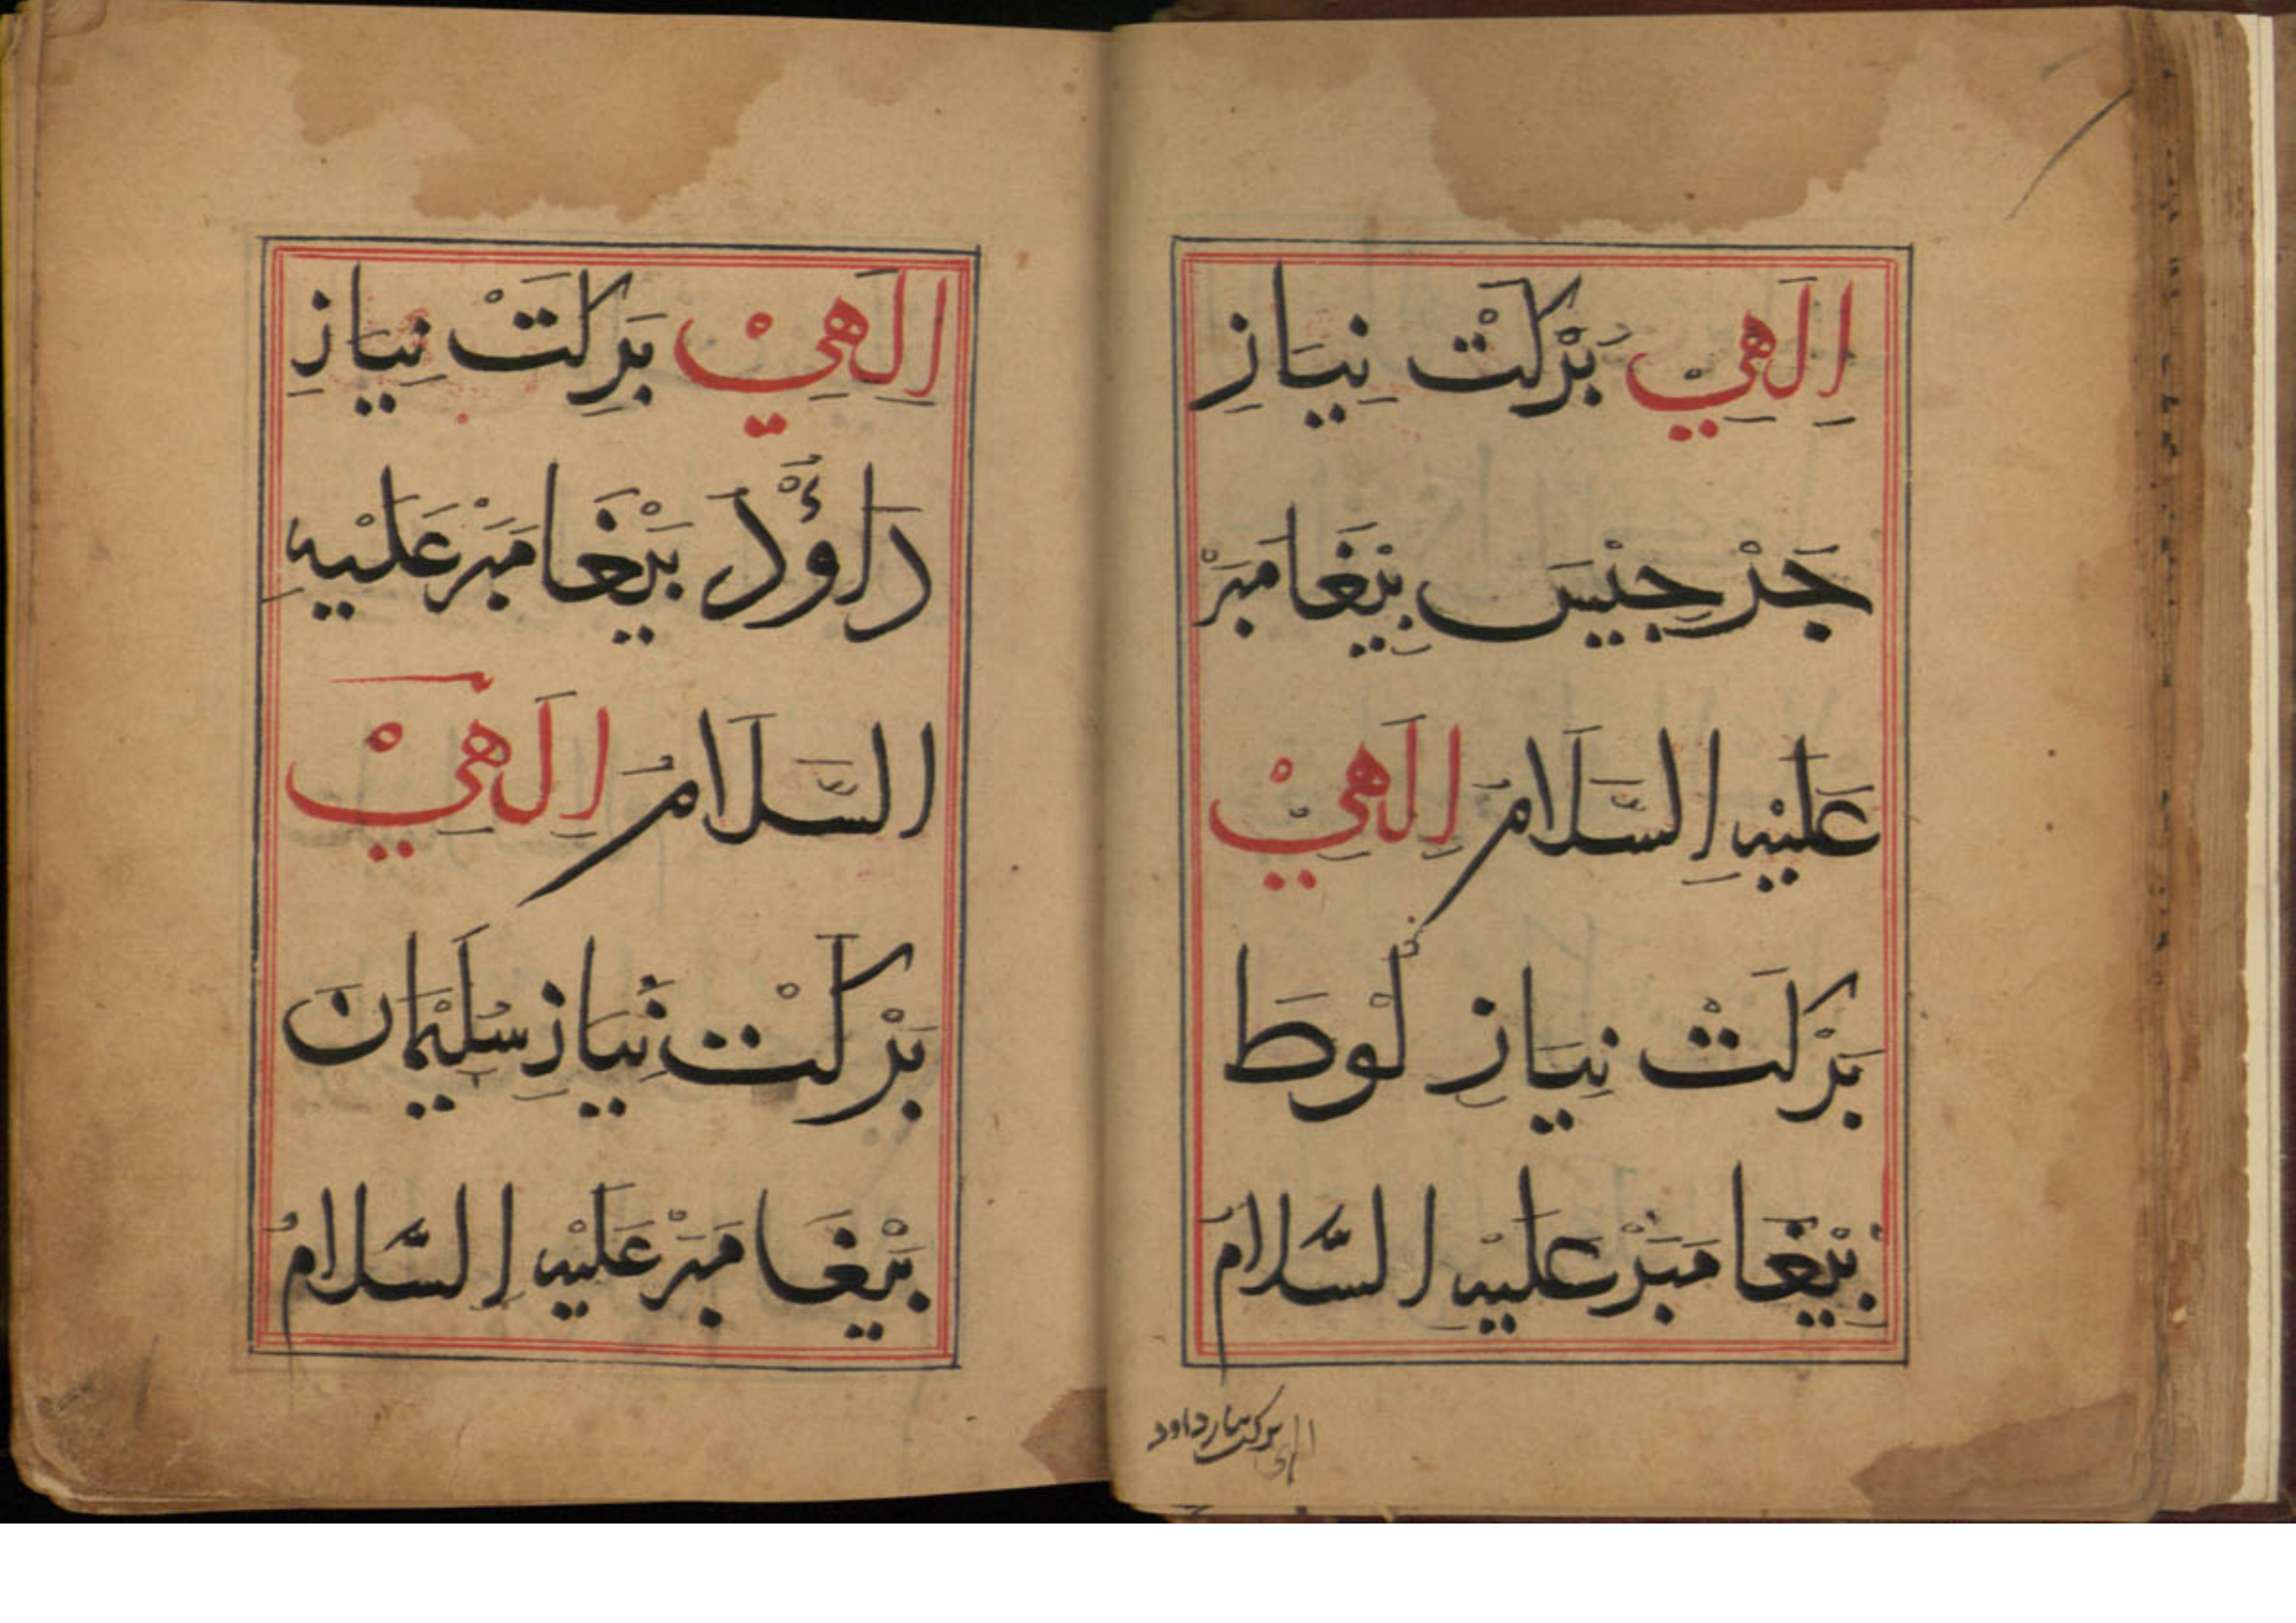 اِلَهِيْ بَرْكَتْ نِيَازِ
جَرْجِيْسَ بِيْغَامَبَرْ
عَلَيْهِ اِلسَّلَامُ اِلَهِيْ
بَرْكَتْ نِيَازِ لُوْطَ
بِيْغَامَبَرْ عَلَيْهِ السَّلَامُ
الهی برکت نیاز داود
اِلَهِيْ بَرِكَتْ نِيَازِ
دَاؤُدَ بَيْغَامَبَرْ عَلَيْهِ
السَّلَامُ اِلَهِيْ
بَرْكَتْ نِيَازِ سُلَيْمَانَ
بَيْغَامَبَرْ عَلَيْهِ اِلسَّلَامُ